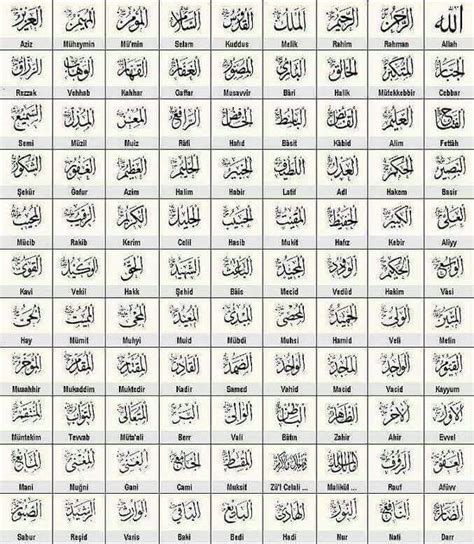 الله الرحمن الرحيم الملك القدوس السلام المؤمن المهيمن العزيز
Aziz Müheymin Mü'min Selam Kuddus Melik Rahim Rahman Allah
الجبار المتكبر الخالق البارئ المصور الغفار القهار الوهاب الرزاق
Rezzak Vehhab Kahhar Gaffar Musavvir Bâri Halik Mütekebbir Cebbar
الفتاح العليم القابض الباسط الخافض الرافع المعز المذل السميع
Semi Müzil Muiz Râfi Hafıd Bâsit Kâbid Alim Fettâh
البصير الحكم العدل اللطيف الخبير الحليم العظيم الغفور الشكور
Şekür Gafur Azim Halim Habir Latif Adl Hakem Basir
العلي الكبير الحفيظ المقيت الحسيب الجليل الكريم الرقيب المجيب
Mücib Rakib Kerim Celil Hasib Mukit Hafız Kebir Aliyy
الواسع الحكيم الودود المجيد الباعث الشهيد الحق الوكيل القوي
Kavi Vekil Hakk Şehid Bâis Mecid Vedüd Hakim Vâsi
المتين الولي الحميد المحصي المبدئ المعيد المحيي المميت الحي
Hay Mümit Muhyi Muid Mübdi Muhsi Hamid Veli Metin
القيوم الواجد الماجد الواحد الصمد القادر المقتدر المقدم المؤخر
Muaahhir Mukaddim Muktedir Kadir Samed Vahid Macid Vacid Kayyum
الأول الآخر الظاهر الباطن الوالي البر المتعالي التواب المنتقم
Müntekim Tevvab Müta'ali Berr Vali Bâtın Zahir Ahir Evvel
العفو الرؤف المقسط الجامع الغني المغني المانع
Mani Muğni Gani Cami Muksit Zü'l Celali ... Malikül ... Rauf Afüvv
الضار النافع النور الهادي البديع الباقي الوارث الرشيد الصبور
Sabur Reşid Varis Baki Bedi Hadi Nur Nafi Darr